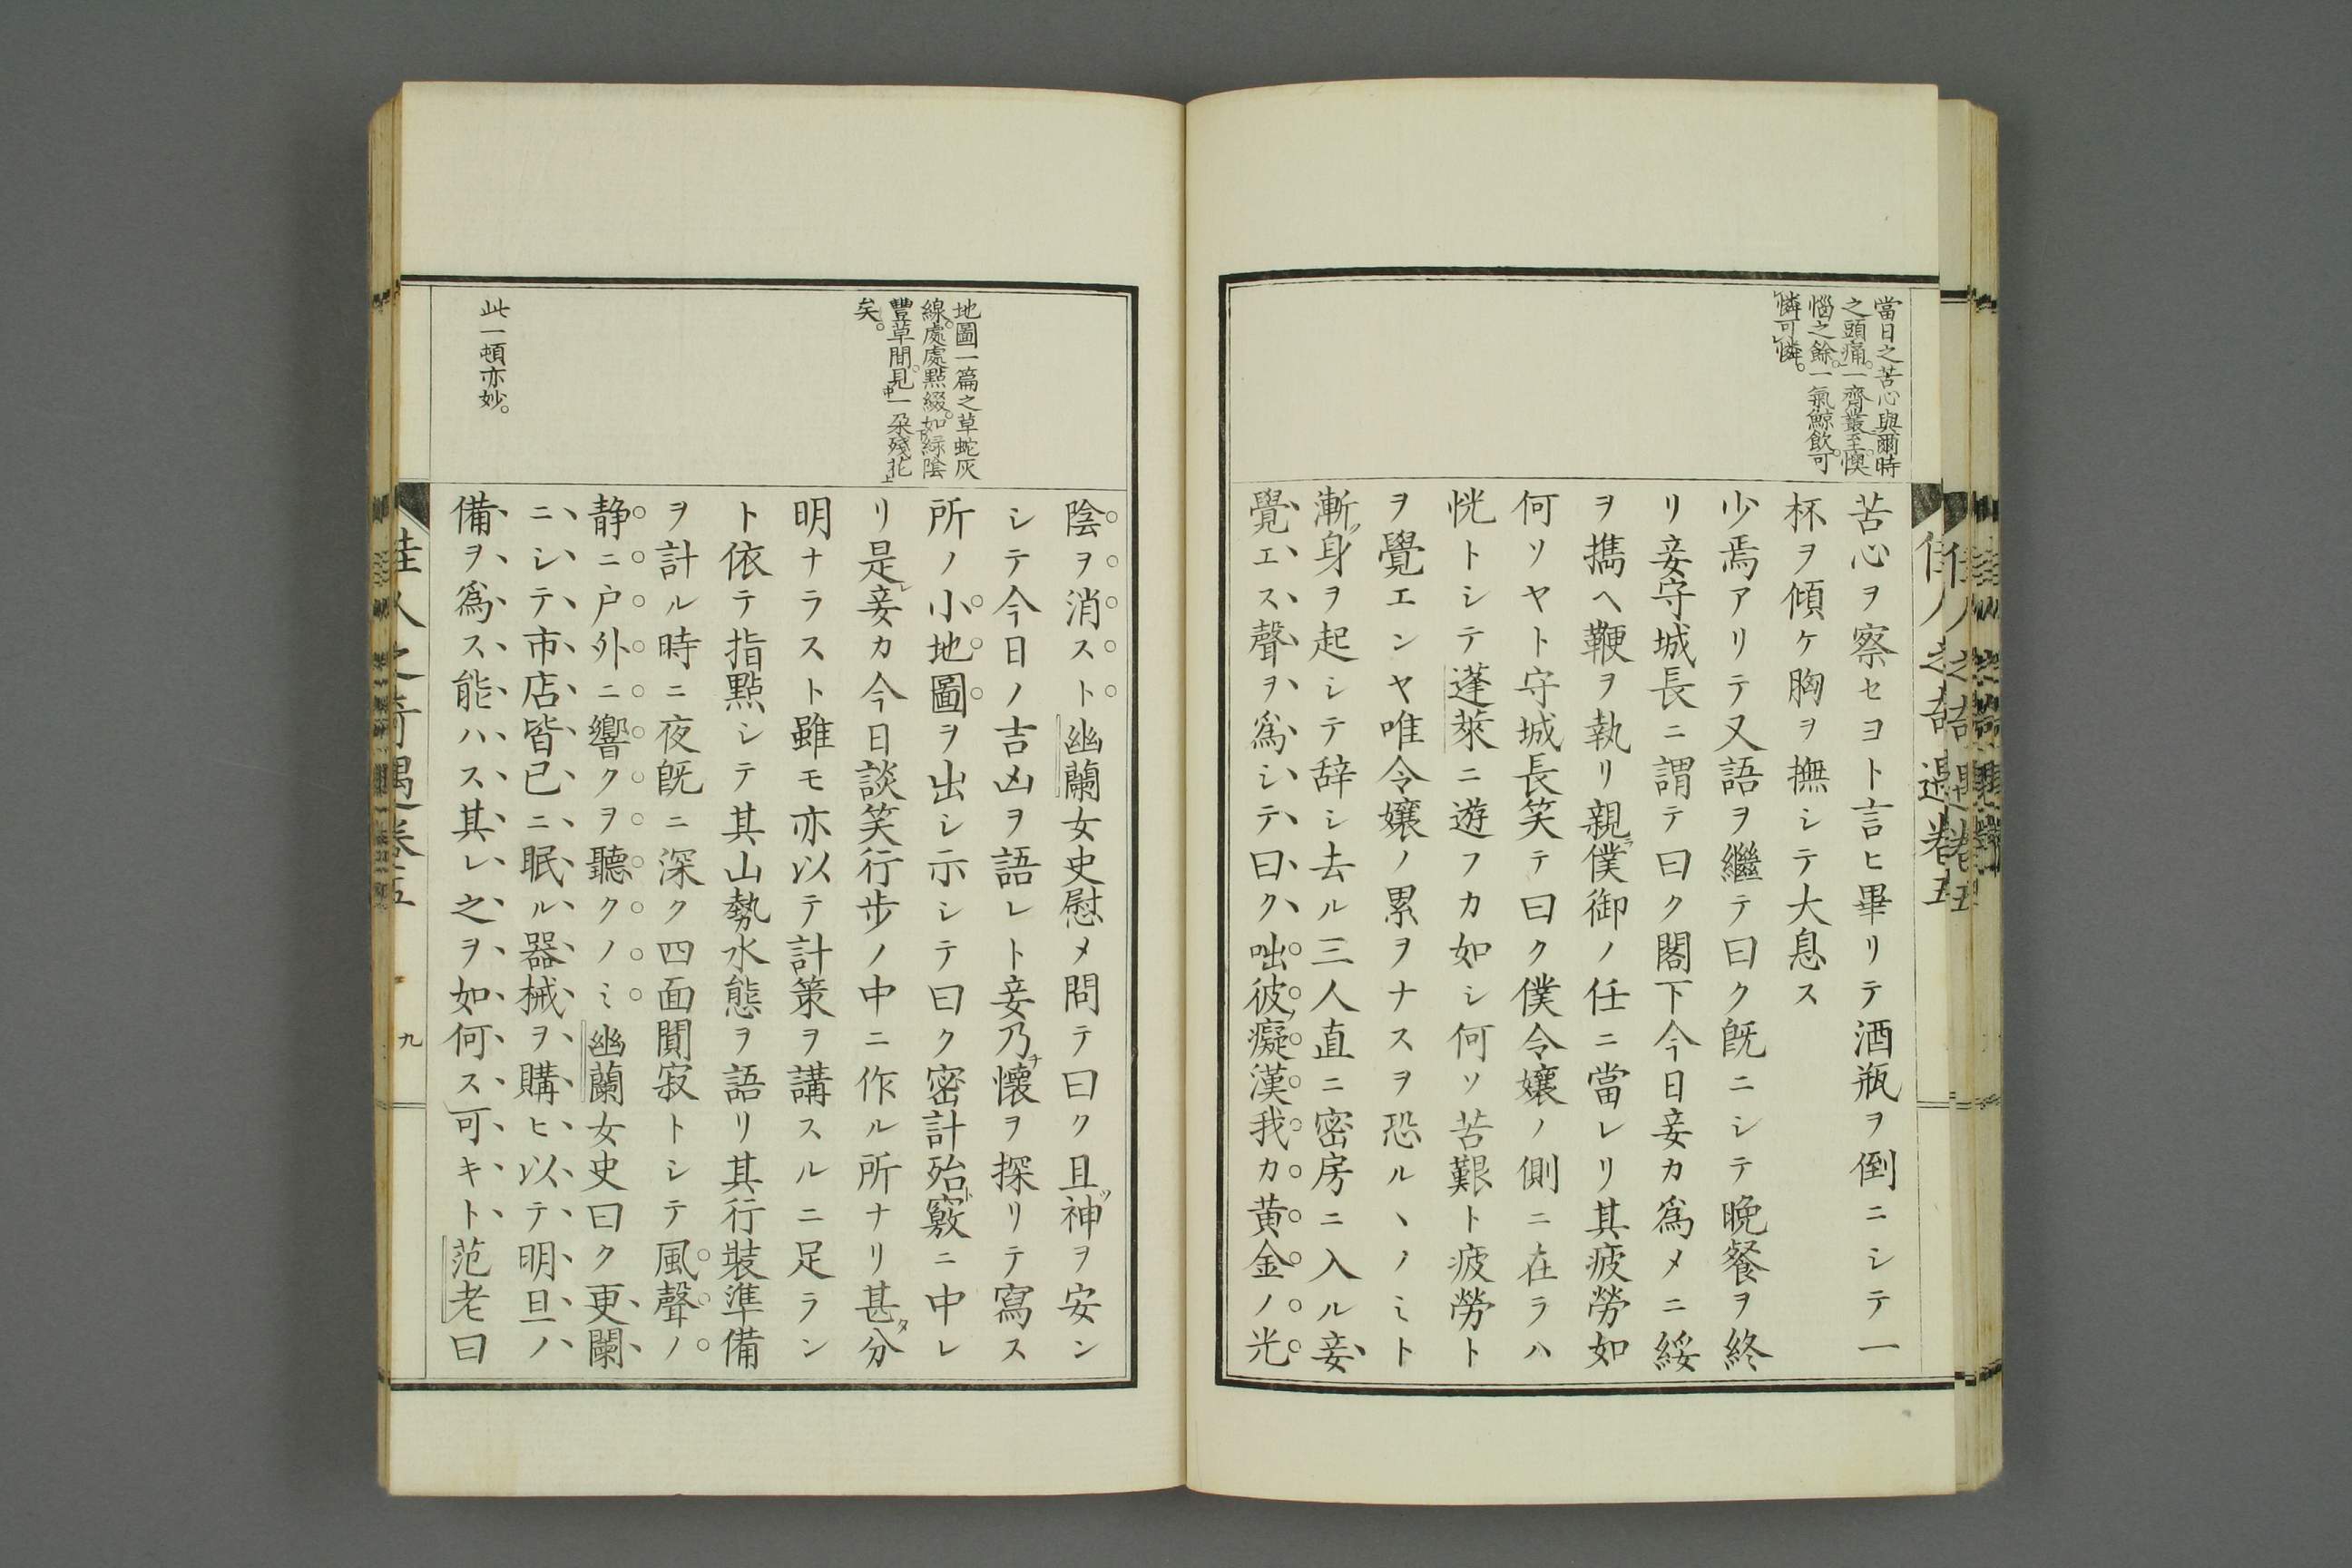 當日之苦心與爾時
之頭痛。一齊叢至懊
惱之餘。一氣鯨飲。可
憐可憐。
苦心ヲ察セヨト言ヒ畢リテ酒瓶ヲ倒ニシテ一
杯ヲ傾ケ胸ヲ撫シテ大息ス
少焉アリテ又語ヲ繼テ曰ク既ニシテ晩餐ヲ終
リ妾守城長ニ謂テ曰ク閣下今日妾カ爲メニ綏
ヲ攜ヘ鞭ヲ執リ親ラ僕御ノ任ニ當レリ其疲勞如
何ソヤト守城長笑テ曰ク僕令孃ノ側ニ在ラハ
恍トシテ蓬萊ニ遊フカ如シ何ソ苦艱ト疲勞ト
ヲ覺エンヤ唯令孃ノ累ヲナスヲ恐ルヽノミト
漸ク身ヲ起シテ辞シ去ル三人直ニ密房ニ入ル妾
覺エス聲ヲ爲シテ曰ク咄彼ノ癡漢我カ黄金ノ光
佳人之奇遇卷五
地圖一篇之草蛇灰
線。處處點綴。如下綠陰
豐草間。見中一朶殘花上
矣。
此一頓亦妙。
陰ヲ消スト幽蘭女史慰メ問テ曰ク且ツ神ヲ安ン
シテ今日ノ吉凶ヲ語レト妾乃チ懷ヲ探リテ寫ス
所ノ小地圖ヲ出シ示シテ曰ク密計殆ト竅ニ中レ
リ是レ妾カ今日談笑行步ノ中ニ作ル所ナリ甚タ分
明ナラスト雖モ亦以テ計策ヲ講スルニ足ラン
ト依テ指點シテ其山勢水態ヲ語リ其行裝準備
ヲ計ル時ニ夜既ニ深ク四面闃寂トシテ風聲ノ
静ニ戸外ニ響クヲ聽クノミ幽蘭女史曰ク更闌
ニシテ市店皆已ニ眠ル器械ヲ購ヒ以テ明旦ノ
備ヲ爲ス能ハス其レ之ヲ如何ス可キト范老曰
佳人之奇遇卷五
九